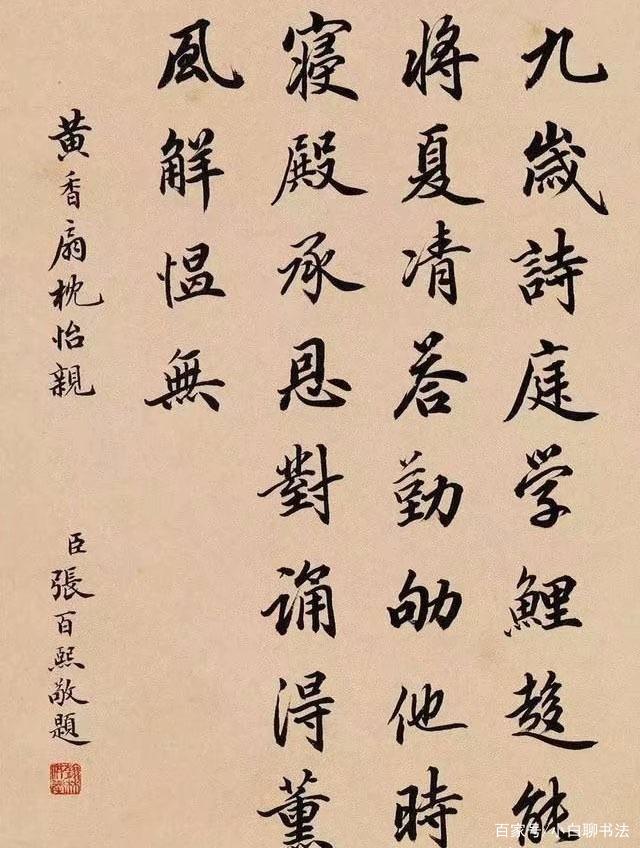 九歲詩庭学鯉趍能
將夏凊荅勤劬他時
寢殿承恩對誦得薰
風解愠無
黄香扇枕怡親
臣張百熙敬題
百家号/小白聊书法